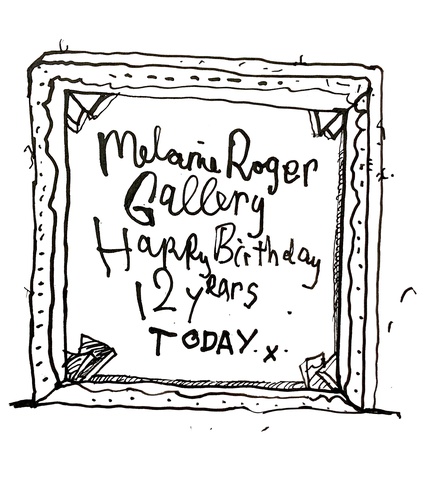 Melanie Roger
Gallery
Happy Birthday
12 years
TODAY. x.